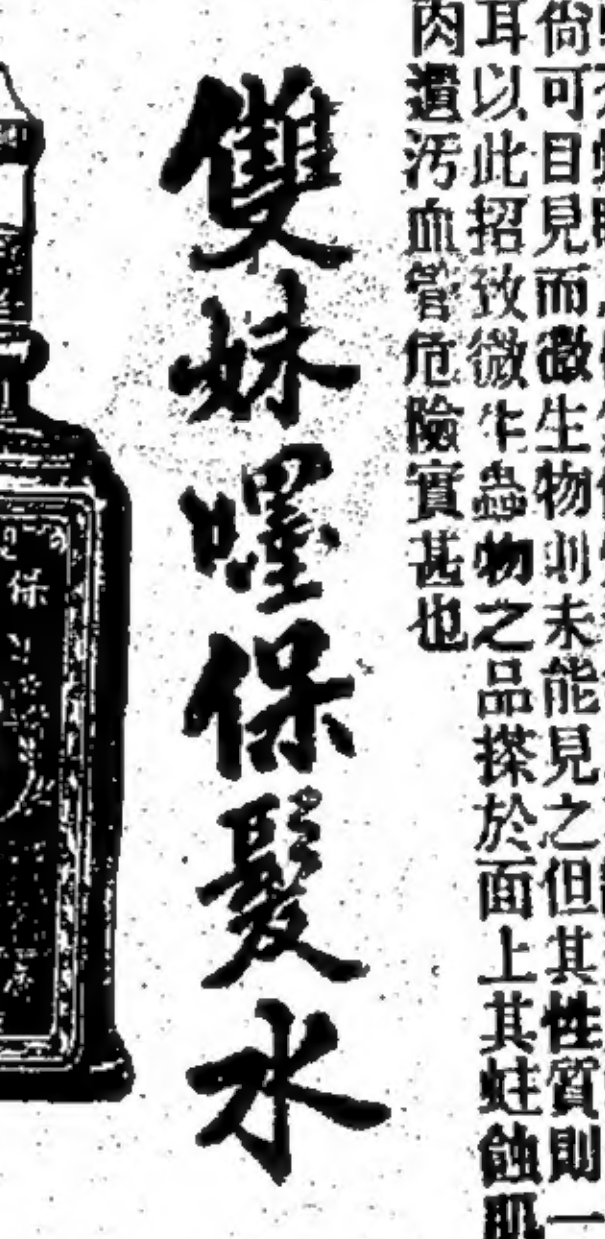 尙可目見而微生物則未能見之但其性質則一
耳以此招致微生蟲物之品搽於面上其蛀蝕肌
肉遺汚血管危險實甚也
雙妹嚜保髮水
保